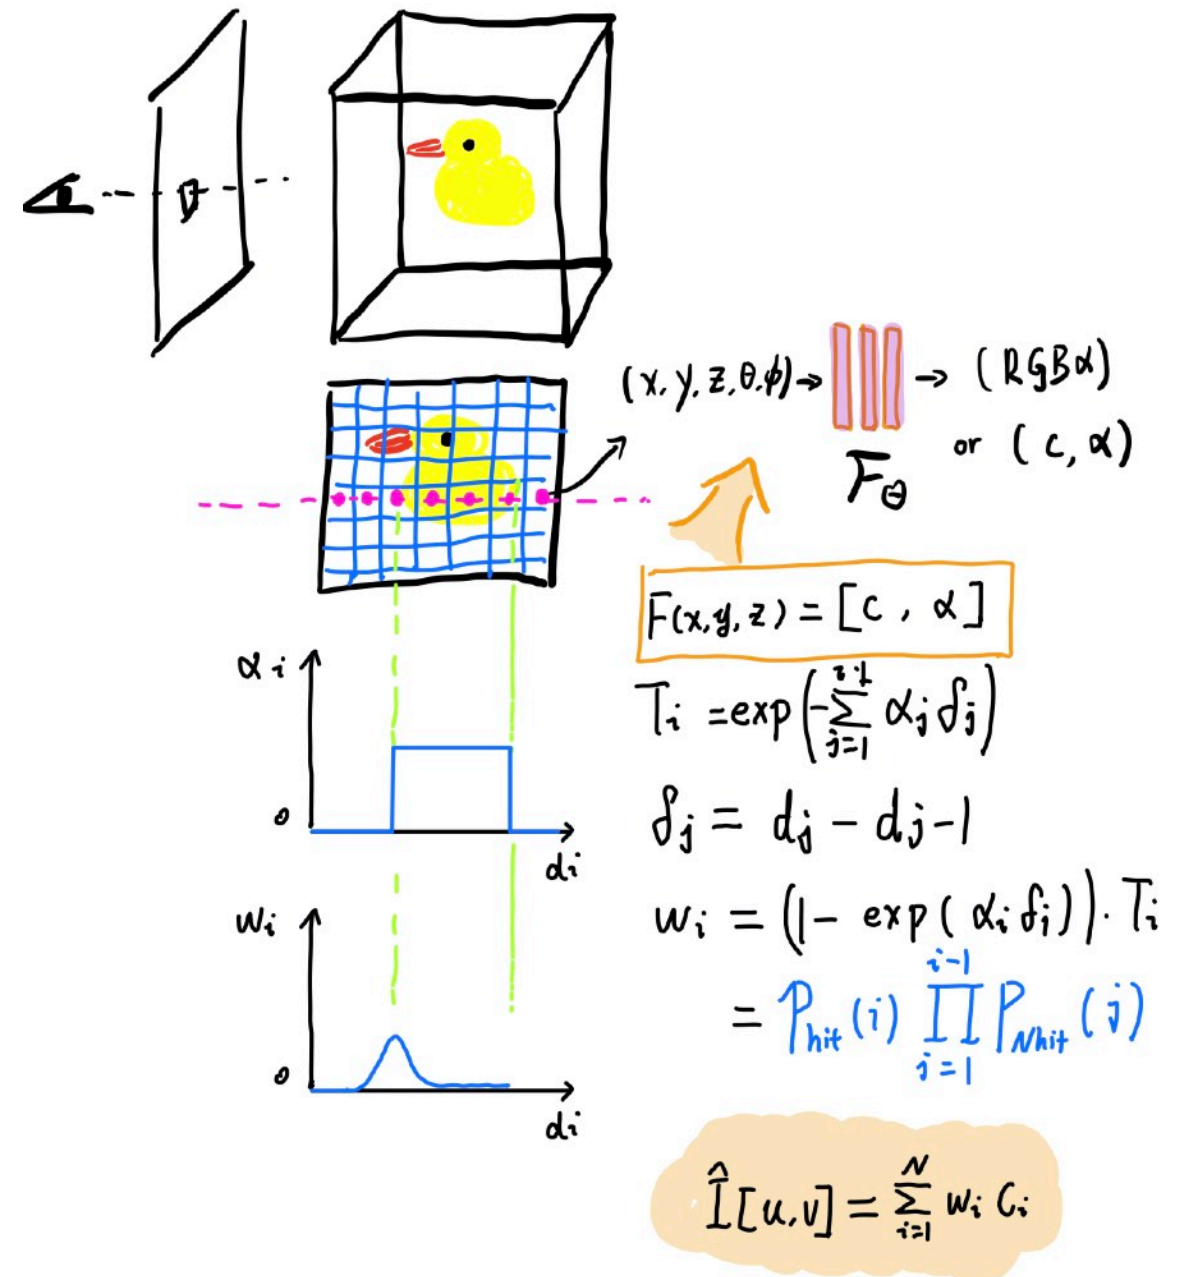 (x, y, z, θ, ϕ) → → (RGBα)
or (c, α)
F_Θ
F(x, y, z) = [c, α]
T_i = exp(-∑_{j=1}^{i-1} α_j δ_j)
δ_j = d_j - d_j-1
w_i = (1 - exp(α_i δ_i)) · T_i
= P_hit(i) ∏_{j=1}^{i-1} P_Nhit(j)
Î[u,v] = ∑_{i=1}^{N} w_i C_i
α_i
0
d_i
w_i
0
d_i